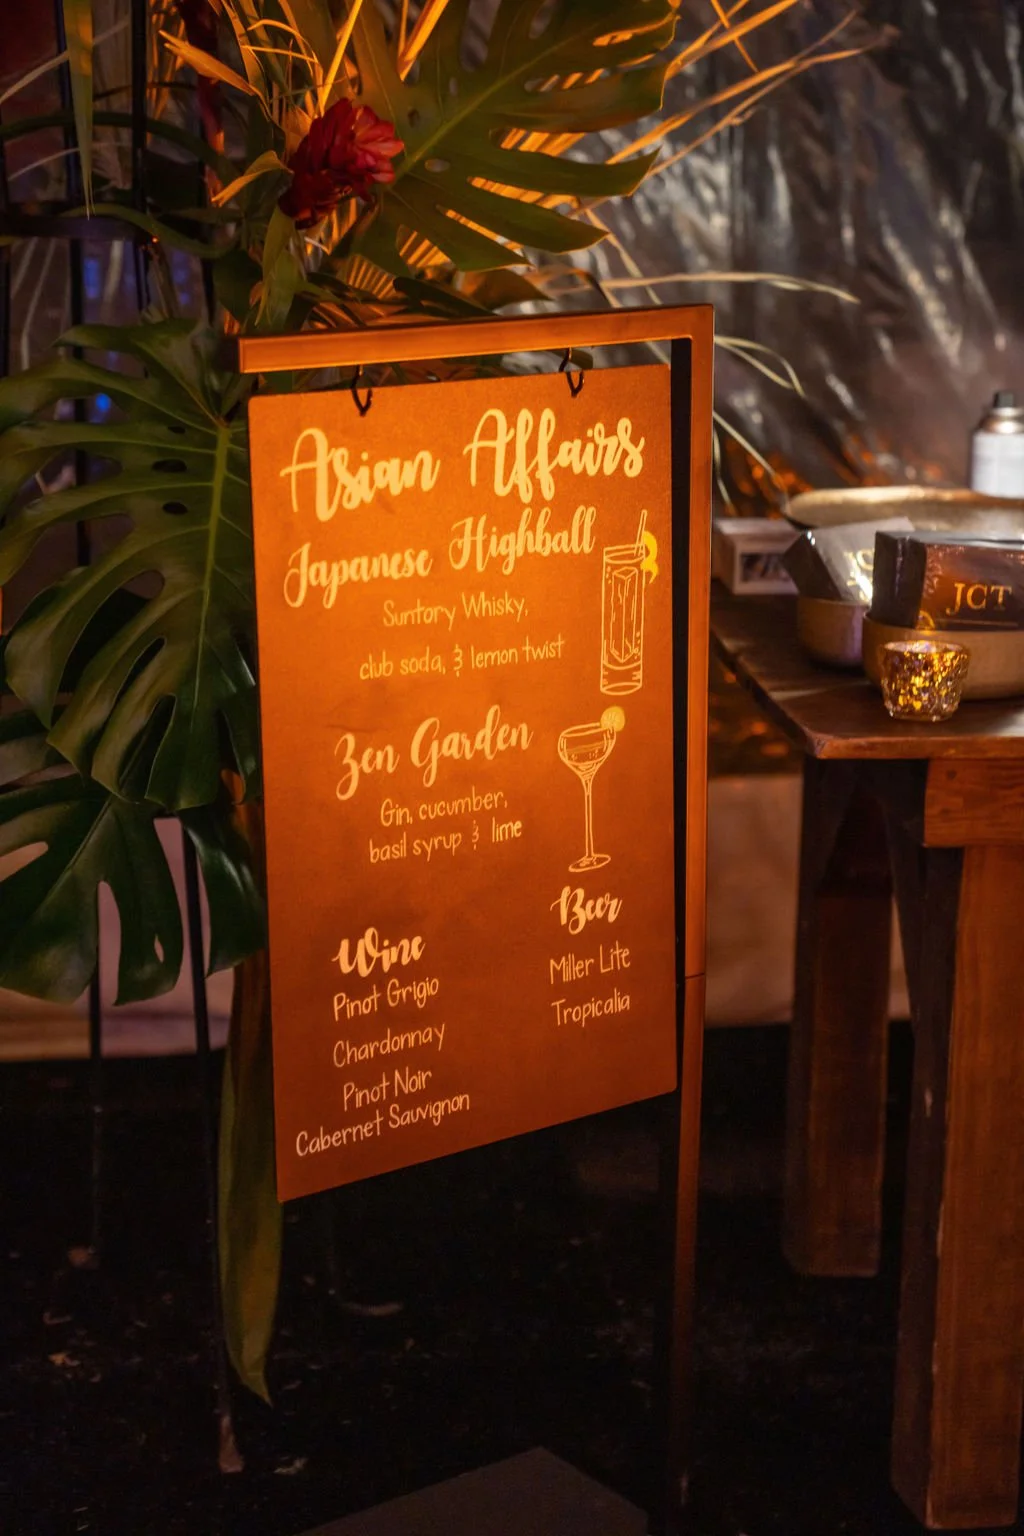 Asian Affairs
Japanese Highball
Suntory Whisky,
club soda, & lemon twist
Zen Garden
Gin, cucumber,
basil syrup & lime
Wine
Pinot Grigio
Chardonnay
Pinot Noir
Cabernet Sauvignon
Beer
Miller Lite
Tropicalia
JCT